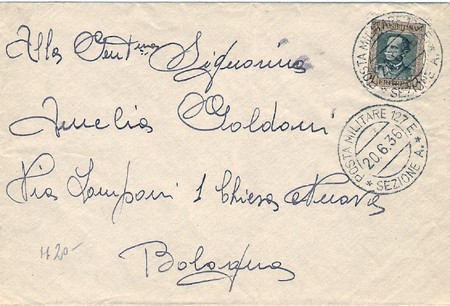 POSTA MILITARE 127 E.
* SEZIONE A. *
Alla Gent.ma Signorina
POSTA MILITARE 127 E.
20.6.36
* SEZIONE A. *
Amelia Goldoni
Via 1 Chiesa Nuova
Bologna